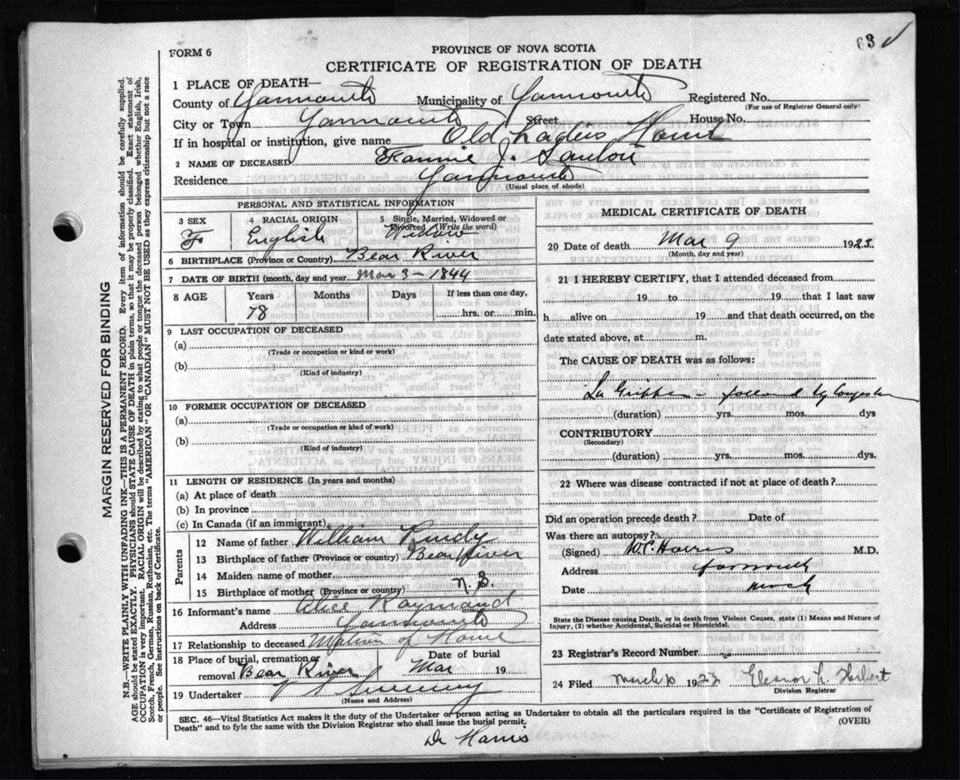 63
FORM 6
PROVINCE OF NOVA SCOTIA
CERTIFICATE OF REGISTRATION OF DEATH
1 PLACE OF DEATH—
County of Yarmouth Municipality of Yarmouth Registered No.
(For use of Registrar General only)
City or Town Yarmouth Street House No.
If in hospital or institution, give name Old Ladies Home
2 NAME OF DECEASED Fannie J.
Residence Yarmouth
(Usual place of abode)
PERSONAL AND STATISTICAL INFORMATION
3 SEX F
4 RACIAL ORIGIN English
5 Single, Married, Widowed or Divorced (Write the word) Widow
6 BIRTHPLACE (Province or Country) Bear River
7 DATE OF BIRTH (month, day and year) Mar 3 - 1844
8 AGE Years Months Days If less than one day,
78 hrs. or min.
9 LAST OCCUPATION OF DECEASED
(a)
(Trade or occupation or kind or work)
(b)
(Kind of industry)
10 FORMER OCCUPATION OF DECEASED
(a)
(Trade or occupation or kind of work)
(b)
(Kind of industry)
11 LENGTH OF RESIDENCE (In years and months)
(a) At place of death
(b) In province
(c) In Canada (if an immigrant)
Parents
12 Name of father William
13 Birthplace of father (Province or country) Bear River
14 Maiden name of mother
15 Birthplace of mother (Province or country) N.S.
16 Informant's name Alice Raymond
Address Yarmouth
17 Relationship to deceased Matron of Home
18 Place of burial, cremation or removal Bear River Date of burial Mar 19
19 Undertaker Sweeny
(Name and Address)
MEDICAL CERTIFICATE OF DEATH
20 Date of death Mar 9 192
(Month, day and year)
21 I HEREBY CERTIFY, that I attended deceased from
19 to 19 that I last saw
h alive on 19 and that death occurred, on
date stated above, at m.
The CAUSE OF DEATH was as follows:
La Grippe - followed by
(duration) yrs. mos. dys
CONTRIBUTORY
(Secondary)
(duration) yrs. mos. dys.
22 Where was disease contracted if not at place of death?
Did an operation precede death? Date of
Was there an autopsy?
(Signed) Harris M.D.
Address Yarmouth
Date March
State the Disease causing Death, or in death from Violent Causes, state (1) Means and Nature of
Injury, (2) whether Accidental, Suicidal or Homicidal.
23 Registrar's Record Number
24 Filed March 10 1922 Eleanor L. Herbert
Division Registrar
SEC. 46—Vital Statistics Act makes it the duty of the Undertaker or person acting as Undertaker to obtain all the particulars required in the "Certificate of Registration of
Death" and to fyle the same with the Division Registrar who shall issue the burial permit. (OVER)
Dr Harris
MARGIN RESERVED FOR BINDING
N.B.—WRITE PLAINLY WITH UNFADING INK—THIS IS A PERMANENT RECORD. Every item of information should be carefully supplied.
AGE should be stated EXACTLY. PHYSICIANS should STATE CAUSE OF DEATH in plain terms, so that it may be properly classified. Exact statement of
OCCUPATION is very important. RACIAL ORIGIN will be described by stating to what people or tongue the deceased person belonged whether English, Irish,
Scotch, French, German, Russian, Ruthenian, etc. The terms "AMERICAN" OR "CANADIAN" MUST NOT BE USED as they express citizenship but not a race
or people. See instructions on back of Certificate.